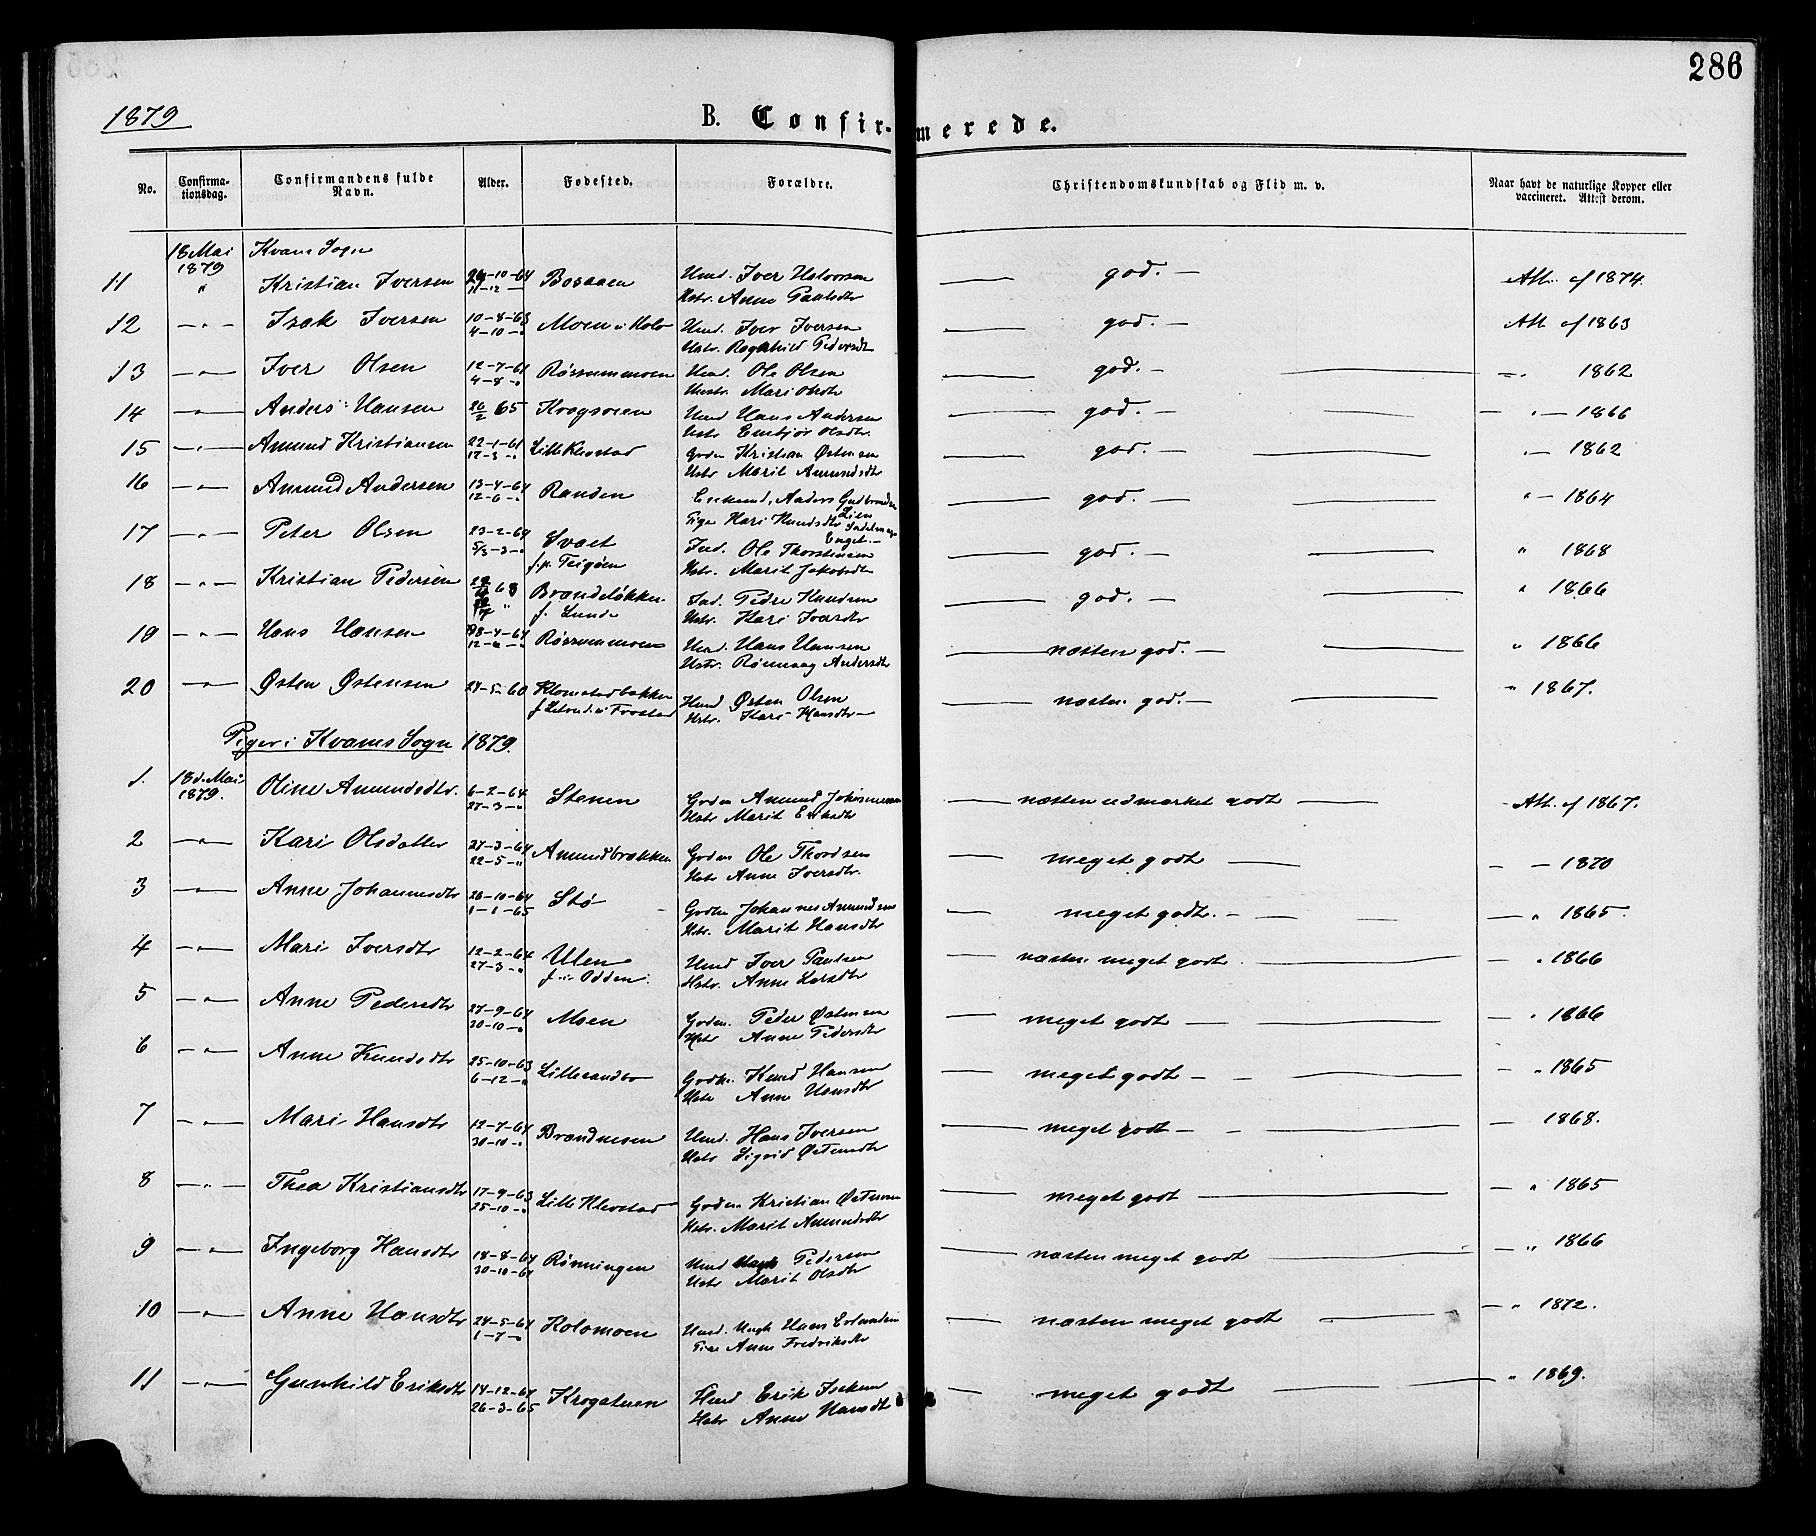 286
1879
B. Confirmerede.
No. Confirmationsdag. Confirmandens fulde Navn. Alder. Fødested. Forældre. Christendomskundskab og Flid m. v. Naar havt de naturlige Kopper eller vaccineret. Attest derom.
18 Mai 1879 Kvams Sogn
11 " Kristian Iversen -10-64 11-12- Bosaaen Hmd. Iver Halvorsen Hstr. Anne Paulsdtr god. — Att. af 1874.
12 —"— Isak Iversen 10-8-63 4-10-" Moen Hmd. Iver Iversen Hstr. Ragnhild Pedersdt god. — Att af 1863
13 —"— Iver Olsen 12-7-61 4-8-" Røssummoen Hmd. Ole Olsen Hustr. Mari Olsdt god. — 1862
14 —"— Anders Hansen 26/2 65 Krogsveen Hmd Hans Andersen Hstr Embjør Olsdtr. god. — — " — 1866
15 —"— Amund Kristiansen 22-1-61 17-3-" Lille Klevstad Grdm Kristian Østensen Hstr Marit Amundsdtr god. — " — 1862
16 —"— Amund Andersen 13-4-64 12-6-" Randen Enkemd, Anders Gudbrandsen Lien Pige Kari Knudsdtr god. — " — 1864
17 —"— Peter Olsen 23-2-64 Svaet f. p. Teigøen Ind. Ole Thorstensen Hstr. Marit Jakobsdtr god. — " 1868
18 —"— Kristian Pedersen 63 Brandeløkken f. Lunde Ind. Peder Knudsen Hstr. Kari Iversdtr god. — " 1866
19 —"— Hans Hansen 8-4-64 12- -" Røssummoen Hmd. Hans Hansen Hstr. Rønnaug Andersdtr næsten god. — " 1866
20 —"— Østen Østensen 24-5-60 Klomstadbakken Hmd Østen Olsen Hstr. Kari Hansdtr — næsten god. — " 1867.
Piger i Kvams Sogn 1879.
1. 18 d. Mai 1879. Oline Amundsdtr. 6-2-64 27-3-" Stenen Grdm Amund Johannessen Hstr Marit Eriksdtr næsten udmærket godt — Att. af 1867.
2 —"— Kari Olsdatter 27-3-64 22-5-" Amundbrækken Grdm Ole Thordsen Hstr Anne Iversdtr. meget godt — — 1870
3 —"— Anne Johannesdtr 26-10-64 1-1-65 Stø Grdm Johannes Amundsen Hstr. Marit Hansdtr meget godt. — — " 1865.
4 —"— Mari Iversdtr 12-2-64 27-3-" Ulen f. i Odden. Hmd Iver Paulsen Hstr. Anne Larsdtr næsten meget godt. — " 1866
5 —"— Anne Pedersdtr 27-9-64 30-10-" Moen Grdm. Peder Østensen Hstr Anne Pedersdtr meget godt — — " 1866
6 —"— Anne Knudsdtr 25-10-63 6-12-" Lillesandbo Grdm. Knud Hansen Hstr Anne Hansdtr meget godt — — " 1865
7 —"— Mari Hansdtr 12-7-64 30-10-" Brandmoen Hmd. Hans Iversen Hstr Sigrid Østensdtr meget godt — — 1868.
8 —"— Thea Kristiansdtr 17-9-63 25-10-" Lille Klevstad Grdm Kristian Østensen Hstr. Marit Amundsdtr meget godt — — " 1865
9 —"— Ingeborg Hansdtr 18-8-64 30-10-64 Rønningen Hmd Hans Pedersen Hstr Marit Olsdtr næsten meget godt — " 1866
10 —"— Anne Hansdtr 24-5-64 1-7-" Kolomoen Hmd. Ungk Hans Erlandsen Pige Anne Fredriksdtr næsten meget godt — — " 1872.
11 —"— Gunhild Eriksdtr 14-12-64 26-3-65 Krogstuen Hmd Erik Isaksen Hstr Anne Hansdtr meget godt — " 1869.